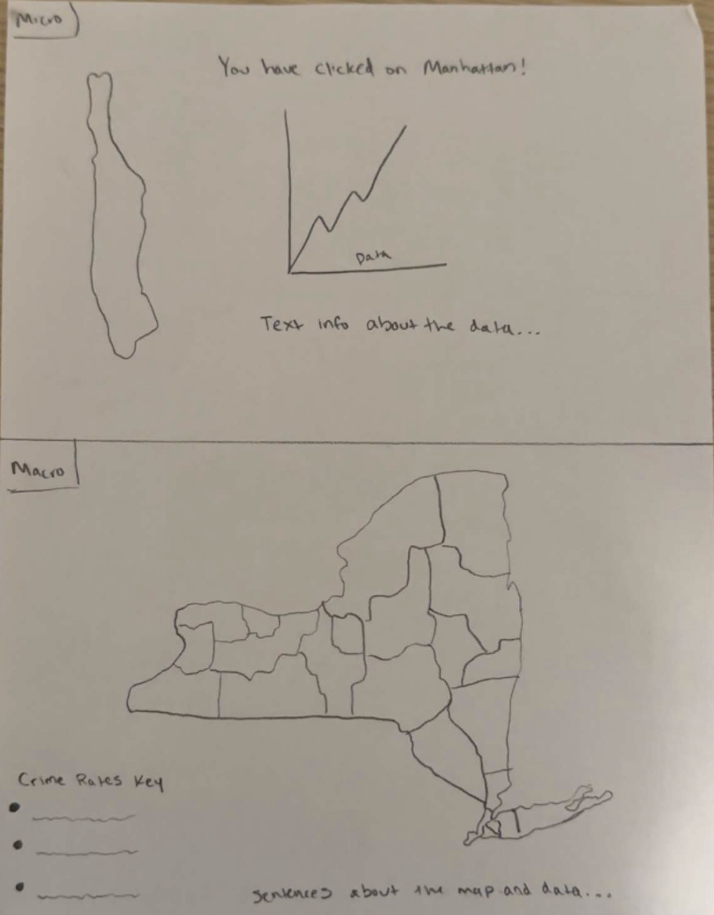 Micro
You have clicked on Manhattan!
Data
Text info about the data...
Macro
Crime Rates Key
sentences about the map and data...